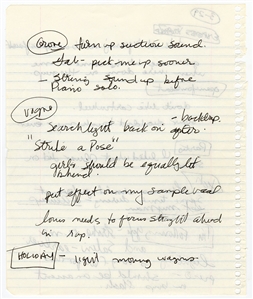 Groove turn up suction sound.
Stab - pick me up sooner
- String sound up before
Piano solo.
Vogue - backdrop.
Searchlight back on after.
"Strike a Pose"
girls should be equally let
behind
put effect on my sample vocal
lous needs to focus straight ahead
in rap.
HOLIDAY - light moving wagons.